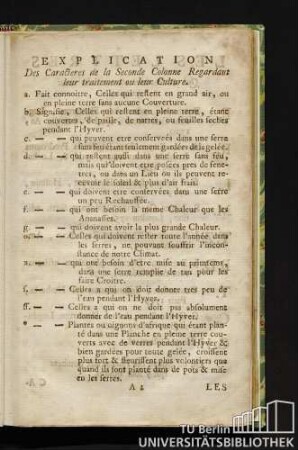 EXPLICATION
Des Caracteres de la Seconde Colonne Regardant
leur traitement ou leur Culture.
a. Fait connoitre, Celles qui restent en grand air, ou
en pleine terre sans aucune Couverture.
b. Signifie, Celles qui restent en pleine terre, étant
couvertes, de paille, de nattes, ou feuilles seches
pendant l'Hyver.
c. — — qui peuvent etre conservées dans une serre
sans feu étant seulement gardées de la gelée.
d. — — qui restent aussi dans une serre sans feu,
mais qui doivent etre posées pres de fenetres,
ou dans un Lieu ou ils peuvent recevoir
le soleil & plus d'air frais.
e. — — qui doivent etre conservées dans une serre
un peu Rechauffée.
f. — — qui ont besoin la meme Chaleur que les
Ananasses.
g. — — qui doivent avoir la plus grande Chaleur.
— — Celles qui doivent rester toute l'année dans
les serres, ne pouvant souffrir l'inconstance
de notre Climat.
— — qui ont besoin d'etre mise au printems,
dans une serre remplie de tan pour les
faire Croitre.
f. — — Celles a qui on doit donner tres peu de
l'eau pendant l'Hyver.
ff. — — Celles a qui on ne doit pas absolument
donner de l'eau pendant l'Hyver.
* — — Plantes ou oignons d'afrique qui étant planté
dans une Planche en pleine terre couverts
avec de verres pendant l'Hyver &
bien gardées pour toute gelée, croissent
plus tot & fleurissent plus volontiers que
quand ils sont planté dans de pots & mis
en les serres.
A 2 LES
TU Berlin
UNIVERSITÄTSBIBLIOTHEK